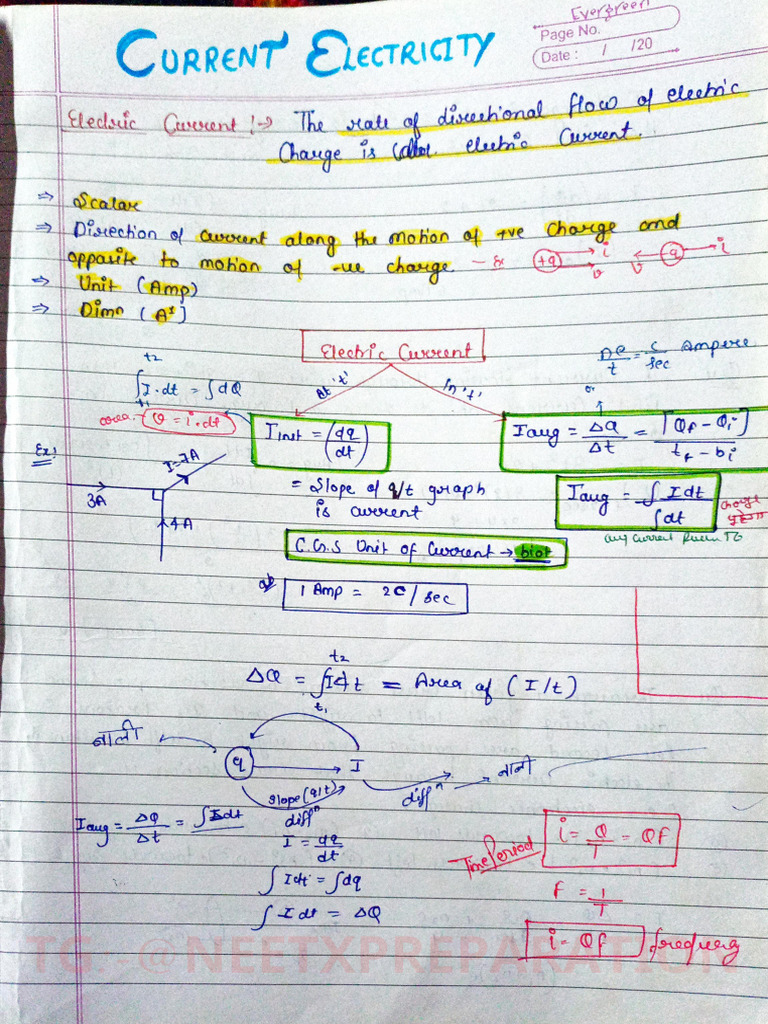 Evergreen
Page No.
Date : / /20
CURRENT ELECTRICITY
Electric Current :→ The rate of directional flow of electric
Charge is electric Current.
⇒ Scalar
⇒ Direction of current along the motion of +ve charge and
opposite to motion of -ve charge - Ex +q i v v -q i
⇒ Unit (Amp)
⇒ Dimn [A¹]
Electric Current
At 't' In 't'
Δe/t = C/sec Ampere
or
∫t₁^t₂ I·dt = ∫dQ
area. Q = i·dt
I inst = (dq/dt)
Iavg = ΔQ/Δt = [Qf - Qi]/tf - bi
Ex:
I=7A
3A
4A
= Slope of q/t graph
is current
Iavg = ∫Idt/∫dt
charge
C.G.S Unit of Current → biot
1 Amp = 2C/sec
ΔQ = ∫t₁^t₂ I dt = Area of (I/t)
नाली q I नानी
slope (q/t)
diffⁿ diffⁿ
Iavg = ΔQ/Δt = ∫Idt
I = dq/dt
∫Idt = ∫dq
∫Idt = ΔQ
Time Period i = Q/T = Qf
f = 1/T
i = Qf frequency
TG:-@NEETXPREPARATION